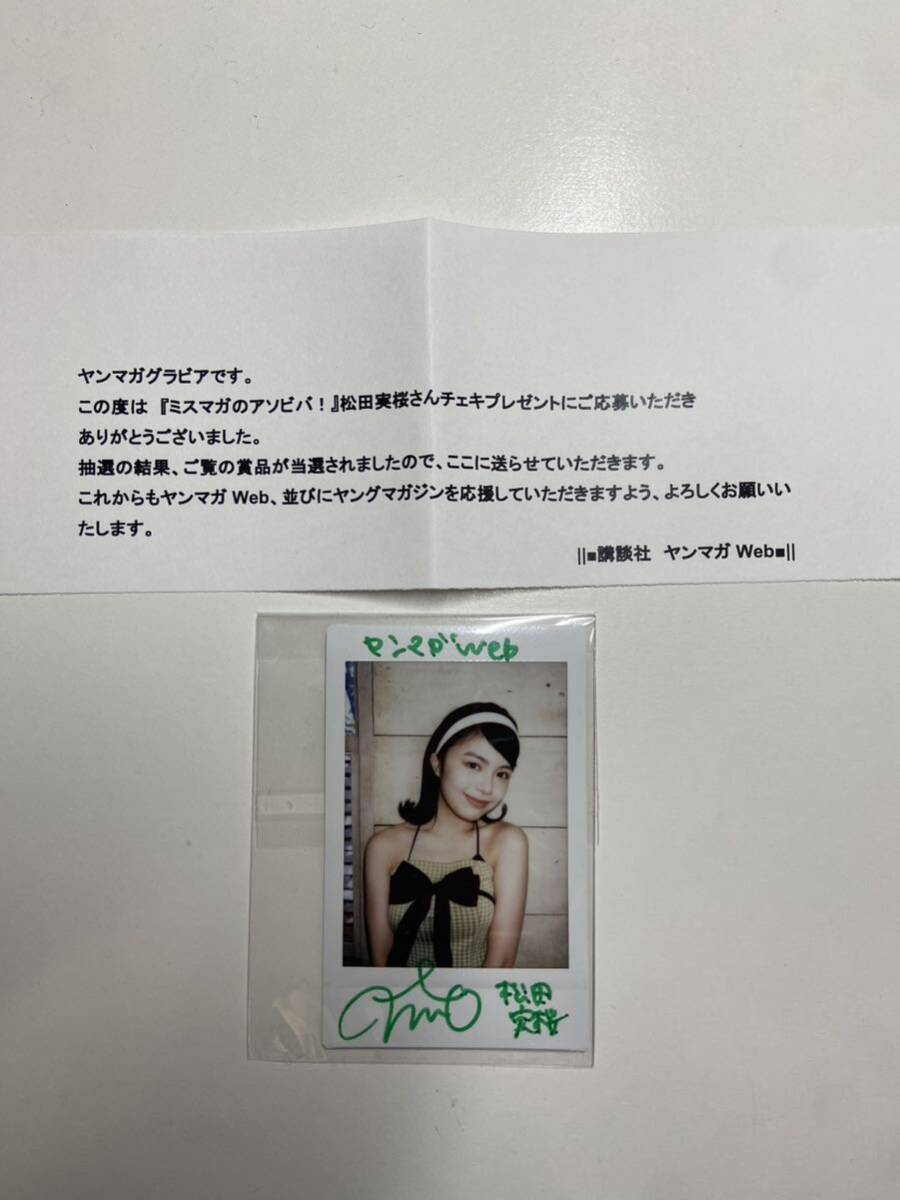 ヤンマガグラビアです。
この度は『ミスマガのアソビバ！』松田実桜さんチェキプレゼントにご応募いただき
ありがとうございました。
抽選の結果、ご覧の賞品が当選されましたので、ここに送らせていただきます。
これからもヤンマガ Web、並びにヤングマガジンを応援していただきますよう、よろしくお願いい
たします。
||■講談社 ヤンマガ Web■||
ヤンマガWeb
松田
実桜